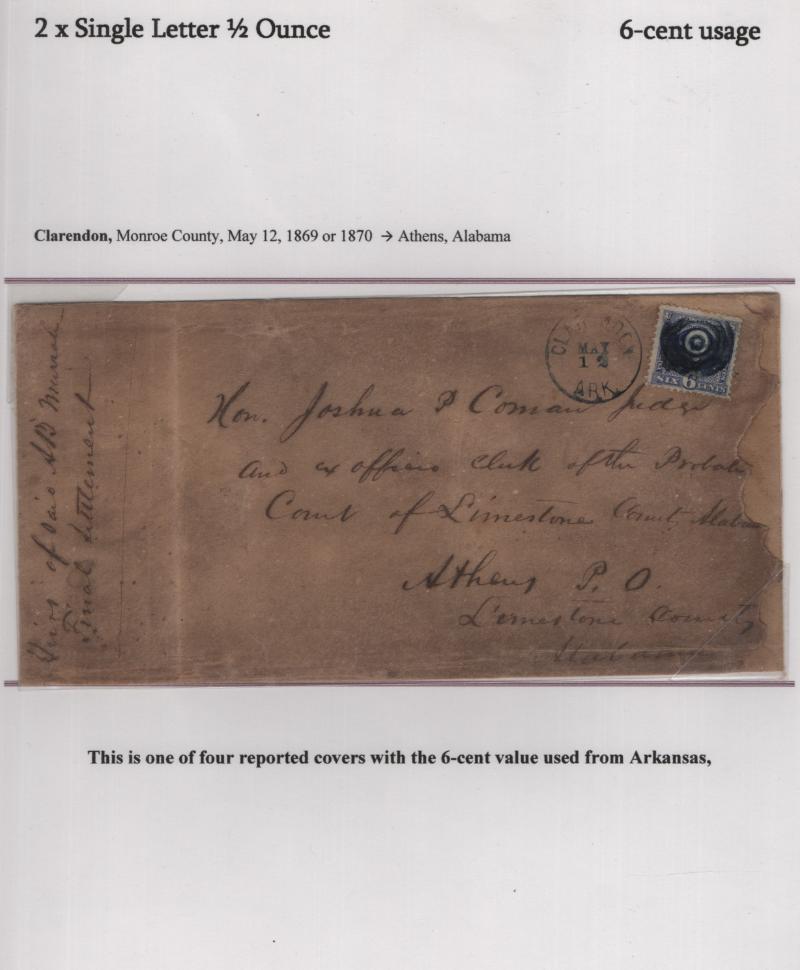 2 x Single Letter ½ Ounce 6-cent usage
Clarendon, Monroe County, May 12, 1869 or 1870 → Athens, Alabama
MAY
12
ARK.
SIX 6 CENTS
Hon. Joshua P Coman Judge
and ex officio clerk of the Probate
Court of Limestone County Alabama
Athens P. O.
Limestone County
Alabama
of said
Final Settlement
This is one of four reported covers with the 6-cent value used from Arkansas,